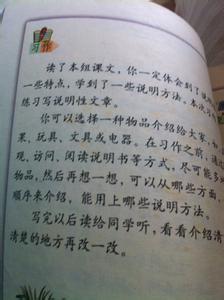 习作
读了本组课文，你一定体会到了说
一些特点，学到了一些说明方法。本次习
练习写说明性文章。
你可以选择一种物品介绍给大家，如
果、玩具、文具或电器。在习作之前，通过
观、访问、阅读说明书等方式，尽可能多
物品，然后再想一想，可以从哪些方面，
顺序来介绍，能用上哪些说明方法。
写完以后读给同学听，看看介绍清
清楚的地方再改一改。